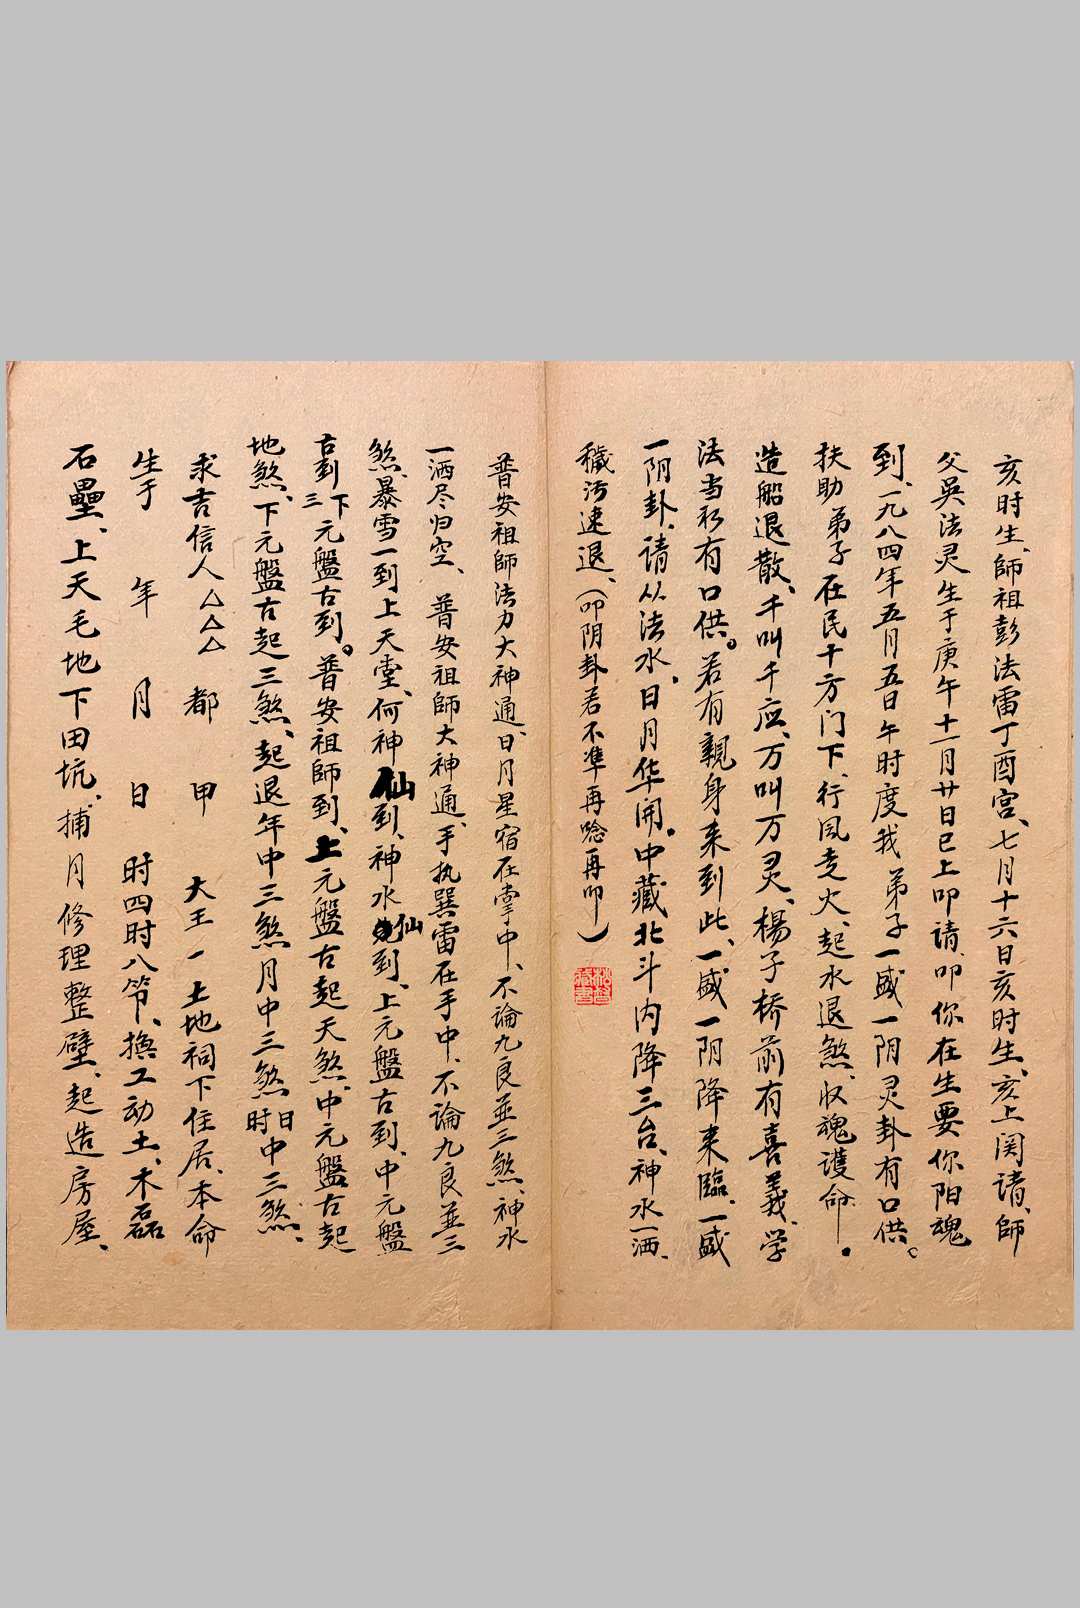 亥时生、師祖彭法雷丁酉宫、七月十六日亥时生、亥上関请、師
父吳法灵生于庚午十一月廿日巳上叩请、叩你在生要你阳魂
到、一九八四年五月五日午时度我 弟子一盛一阴灵卦有口供。
扶助弟子在民十方门下、行風走火、起水退煞、収魂護命。
造船退散、千叫千应、万叫万灵、楊子桥前有喜義、学
法当初有口供。若有親身来到此、一盛一阴降来臨、一盛
一阴卦、请从法水、日月华開。中藏北斗内降三台、神水一洒、
穢污速退、（叩阴卦若不準再唸再叩）
松 藏書
普安祖師法力大神通、日月星宿在掌中、不論九良並三煞、神水
一洒尽归空、 普安祖師大神通、手执巽雷在手中、不論九良並三
煞、暴雪一到上天堂、何神仙到、神水仙到、上元盤古到、中元盤
古到三下元盤古到。普安祖師到、上元盤古起天煞、中元盤古起
地煞、下元盤古起三煞、起退年中三煞月中三煞日时中三煞、
求吉信人△△△ 都 甲 大王一土地祠下住居、本命
生于 年 月 日 时四时八節、换工动土、木磊
石壘、上天毛地下田坑、捕月修理整壁、起造房屋、